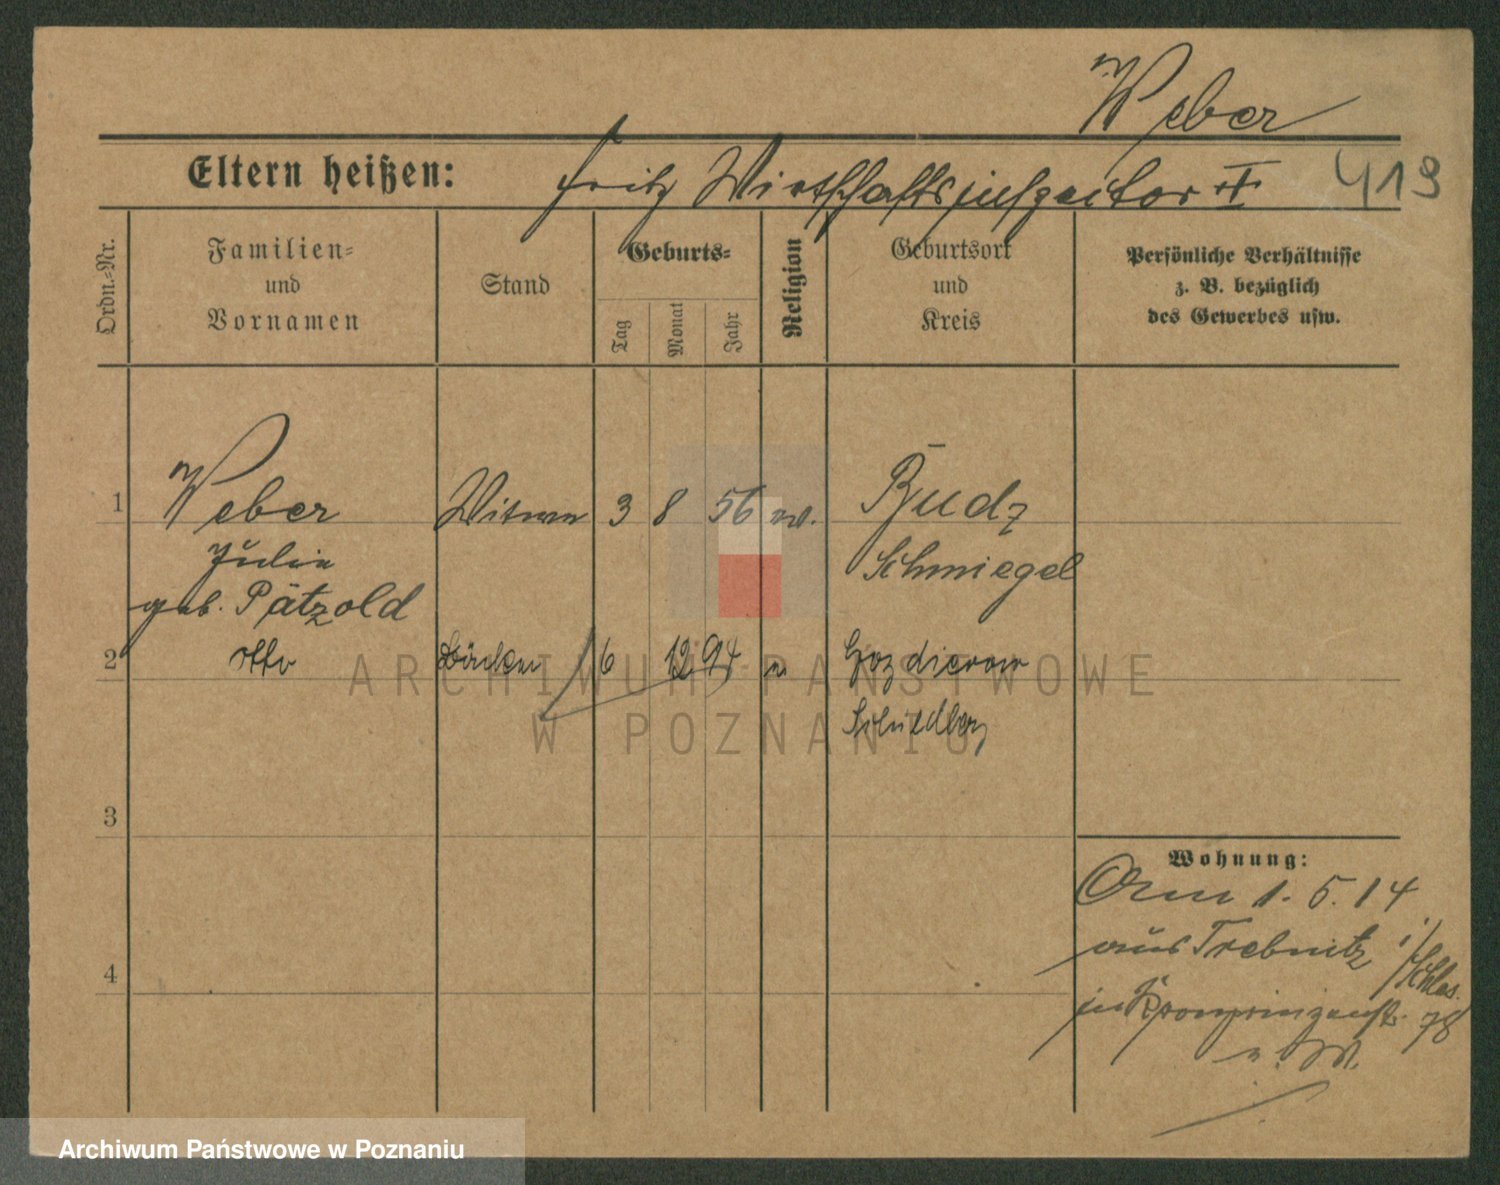 Weber
Eltern heißen: Fritz Wirthschaftsinspektor † 419
Ordn.=Nr.
Familien=
und
Vornamen
Stand
Geburts=
Tag
Monat
Jahr
Religion
Geburtsort
und
Kreis
Persönliche Verhältnisse
z. B. bezüglich
des Gewerbes usw.
1 Weber Witwe 3 8 56 ev. Budz
Julie Schmiegel
geb. Pätzold
2 Otto 6 12 94 e
3
4
Wohnung:
Am 1. 5. 14
aus Trebnitz i/Schles.
in Kronprinzenstr. 78
ARCHIWUM PAŃSTWOWE
W POZNANIU
Archiwum Państwowe w Poznaniu